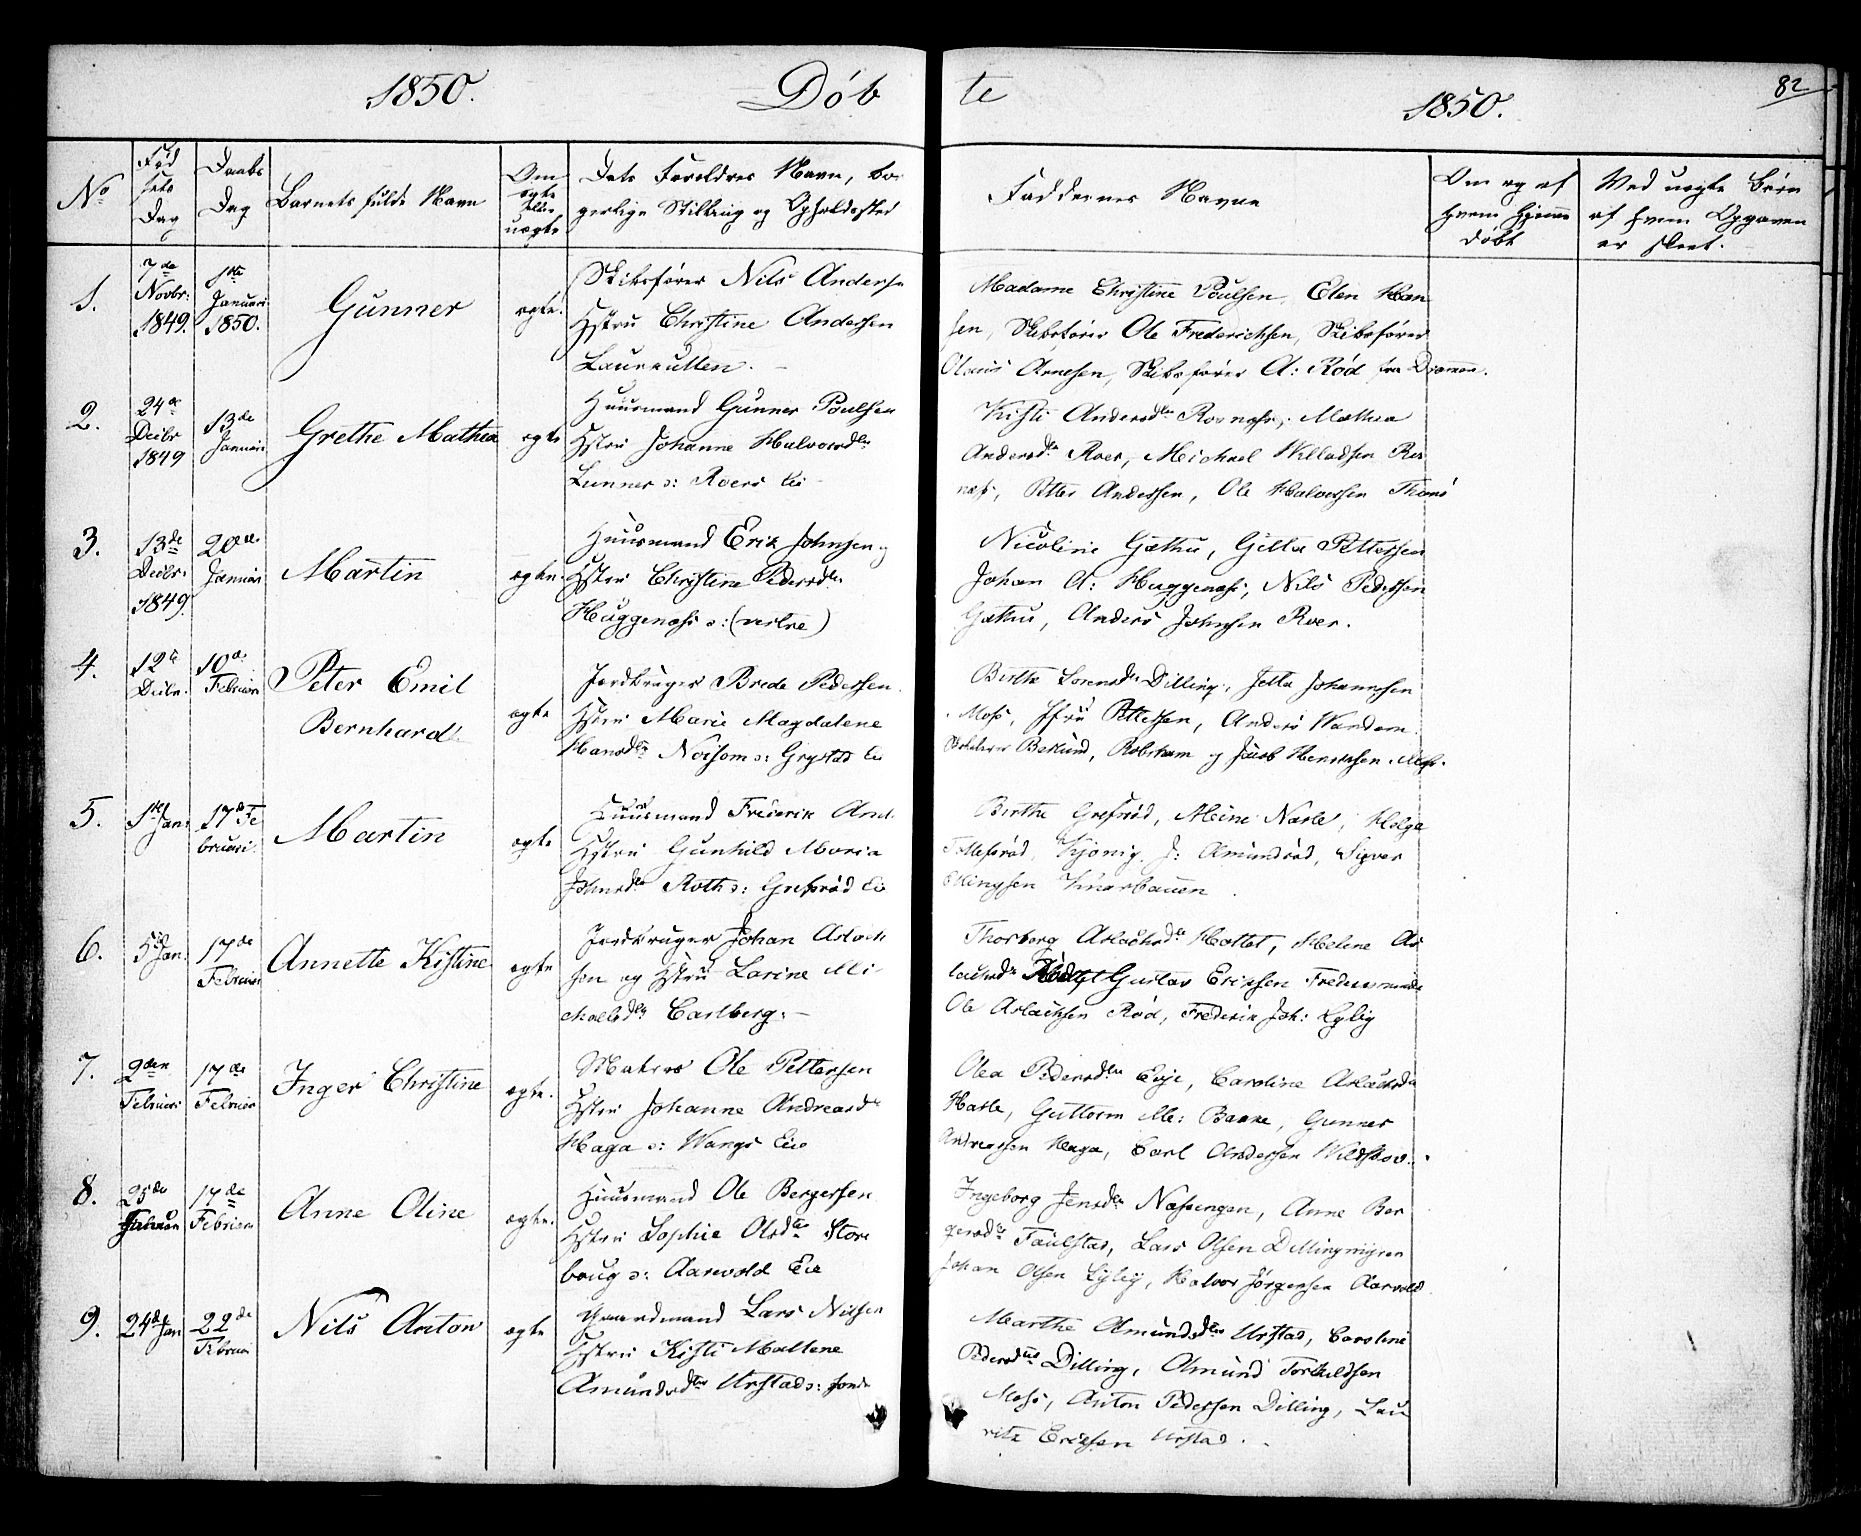 1850. Döb te 1850. 82
No
Fød
sels
Dag
Daabs
Dag
Barnets fulde Navn
Om
ægte
eller
uægte
Dets Forældres Navn, bor
gerlige Stilling og Opholdssted
Faddernes Navne
Om og af
hvem hjemme
døbt
Med uægte Børn
af hvem Opgaven
er skeet.
1.
7de
Novbr.
1849.
1ste
Januari
1850.
Gunner
ægte.
Skibsfører Nils Anderse
Hstru Christine Andersen
Laurkullen.
Madame Christine Poulsen, Elen Han
sen, Skibsfører Ole Frederichsen, Skibsfører
Olaus Arnesen, Skibsfører A: Rød fra Drammen.
2.
24de
Decbr
1849
13de
Januari
Grethe Mathea
ægte
Huusmand Gunner Poulsen
Hstru Johanne Halvorsdtr
Lunner o: Roers Eie
Kisti Andersdtr Rosnæss, Mathea
Andersdtr Roer, Michael Willadsen Ros
næss, Petter Andersen, Ole Halvorsen
3.
13de
Decbr.
1849.
20de
Januari
Martin
ægte.
Huusmand Erik Johnsen og
Hstru Christine Pedersdtr
Huggenæss o: (vestre)
Nicoline Gjethu, Gitta Pettersen
Johan A: Huggenæss, Nils Pedersen
Gjethu, Anders Johnsen Roer.
4.
12te
Decbr.
10de
Februari
Peter Emil
Bernhard
ægte
Jordbruger Brede Pedersen.
Hstru Marie Magdalene
Hansdtr Noisom o: Grystad Eie
Birthe Sørensdtr Dilling, Jetta Johannesen
Moss, Jfru Pettersen, Anders Vandem
Beklund, Robsham og Jacob Henriksen Moss.
5.
1ste Jan.
17de Fe
bruari.
Martin
ægte
Huusmand Friderik And.
Hstru Gunhild Maria
Johnsdtr Roth o: Grefsrød Eie
Birthe Grefsrød, Aleine Narle, Helge
Tollefsrød, Kjønig J: Amundrød, Siver
Ellingsen Knarbauen.
6.
5te Jan.
17de
Februari
Annette Kistine
ægte
Jordbruger Johan Aslach
sen og Hstru Larine Mi
chaelsdtr Carlberg.
Thorborg Aslachsdtr Hattet, Helene As
lachsdtr Gustav Eriksen
Ole Aslachsen Rød, Frederik Joh: Lyby
7.
2den
Februari
17de
Februari
Inger Christine
ægte.
Matros Ole Pettersen
Hstru Johanne Andreasdtr
Haga o: Vangs Eie
Olea Pedersdtr Eeje, Caroline Aslachsdtr
Hasle, Guttorm Me: Bakke, Gunner
Andreassen Haga, Carl Andersen Wildskov.
8.
25de
Januari
17de
Februari
Anne Oline
ægte.
Huusmand Ole Bergersen
Hstru Sophie Olsdtr Store
boug o: Aarvold Eie
Ingeborg Jensdtr Næsengen, Anne Ber
gersdtr Faulstad, Lars Olsen Dillingmyren
Johan Olsen Lyby, Halvor Jørgensen Aarvold.
9.
24de Jan
22de
Februar
Nils Anton
ægte
Gaardmand Lars Nilsen
Hstru Kisti Mallene
Amundsdtr Urstad o: søndre
Marthe Amundsdtr Urstad, Caroline
Pedersdtr Dilling, Amund Torkildsen
Moss, Anton Pedersen Dilling, Lau
ritz Eriksen Urstad.